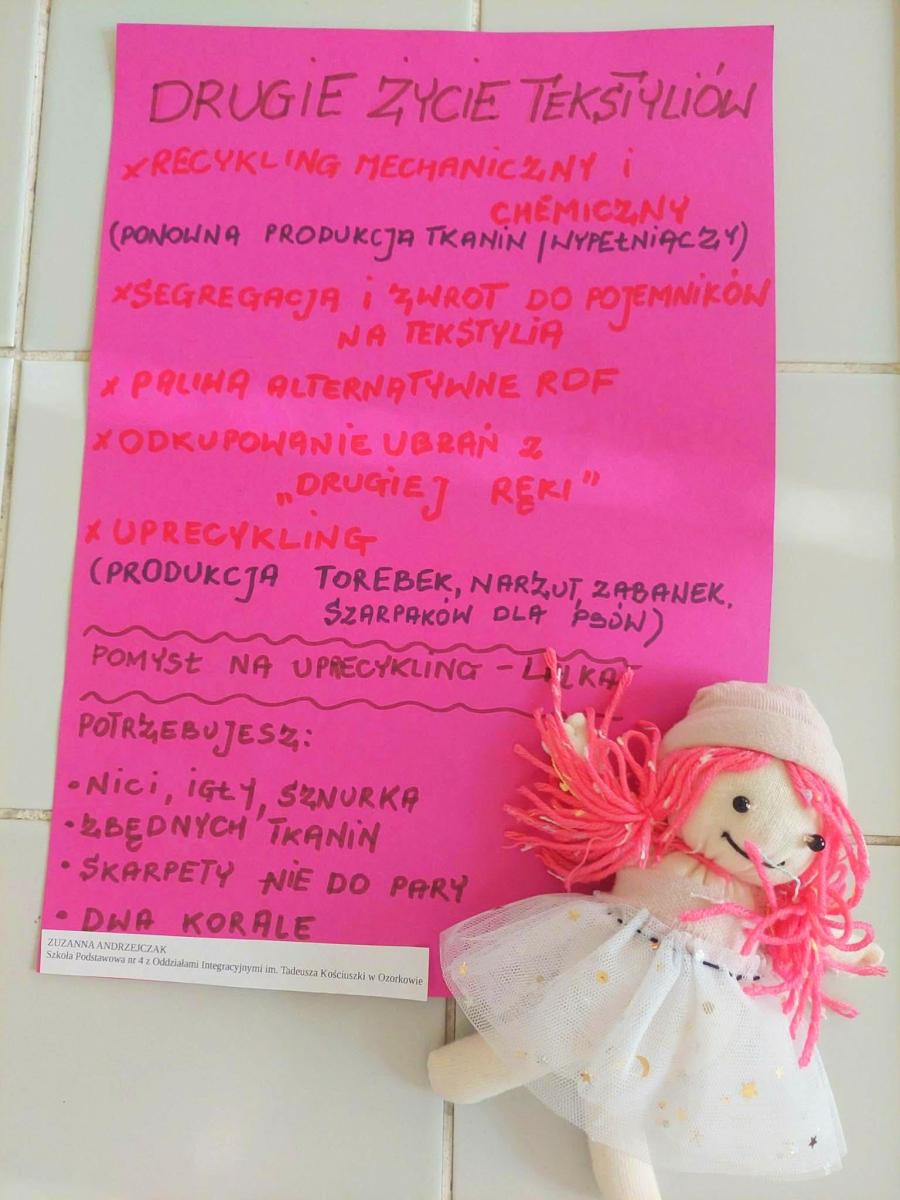 DRUGIE ŻYCIE TEKSTYLIÓW
x RECYKLING MECHANICZNY i
CHEMICZNY
(PONOWNA PRODUKCJA TKANIN / WYPEŁNIĄCZY)
x SEGREGACJA i ZWROT DO POJEMNIKÓW
NA TEKSTYLIA
x PALIWA ALTERNATYWNE RDF
x ODKUPOWANIE UBRAŃ Z
„DRUGIEJ RĘKI"
x UPRECYKLING
(PRODUKCJA TOREBEK, NARZUT, ZABANEK,
SZARPAKÓW DLA PSÓW)
POMYSŁ NA UPRECYKLING - LALKA
POTRZEBUJESZ:
• NICI, IGŁY, SZNURKA
• ZBĘDNYCH TKANIN
• SKARPETY NIE DO PARY
• DWA KORALE
ZUZANNA ANDRZEJCZAK
Szkoła Podstawowa nr 4 z Oddziałami Integracyjnymi im. Tadeusza Kościuszki w Ozorkowie